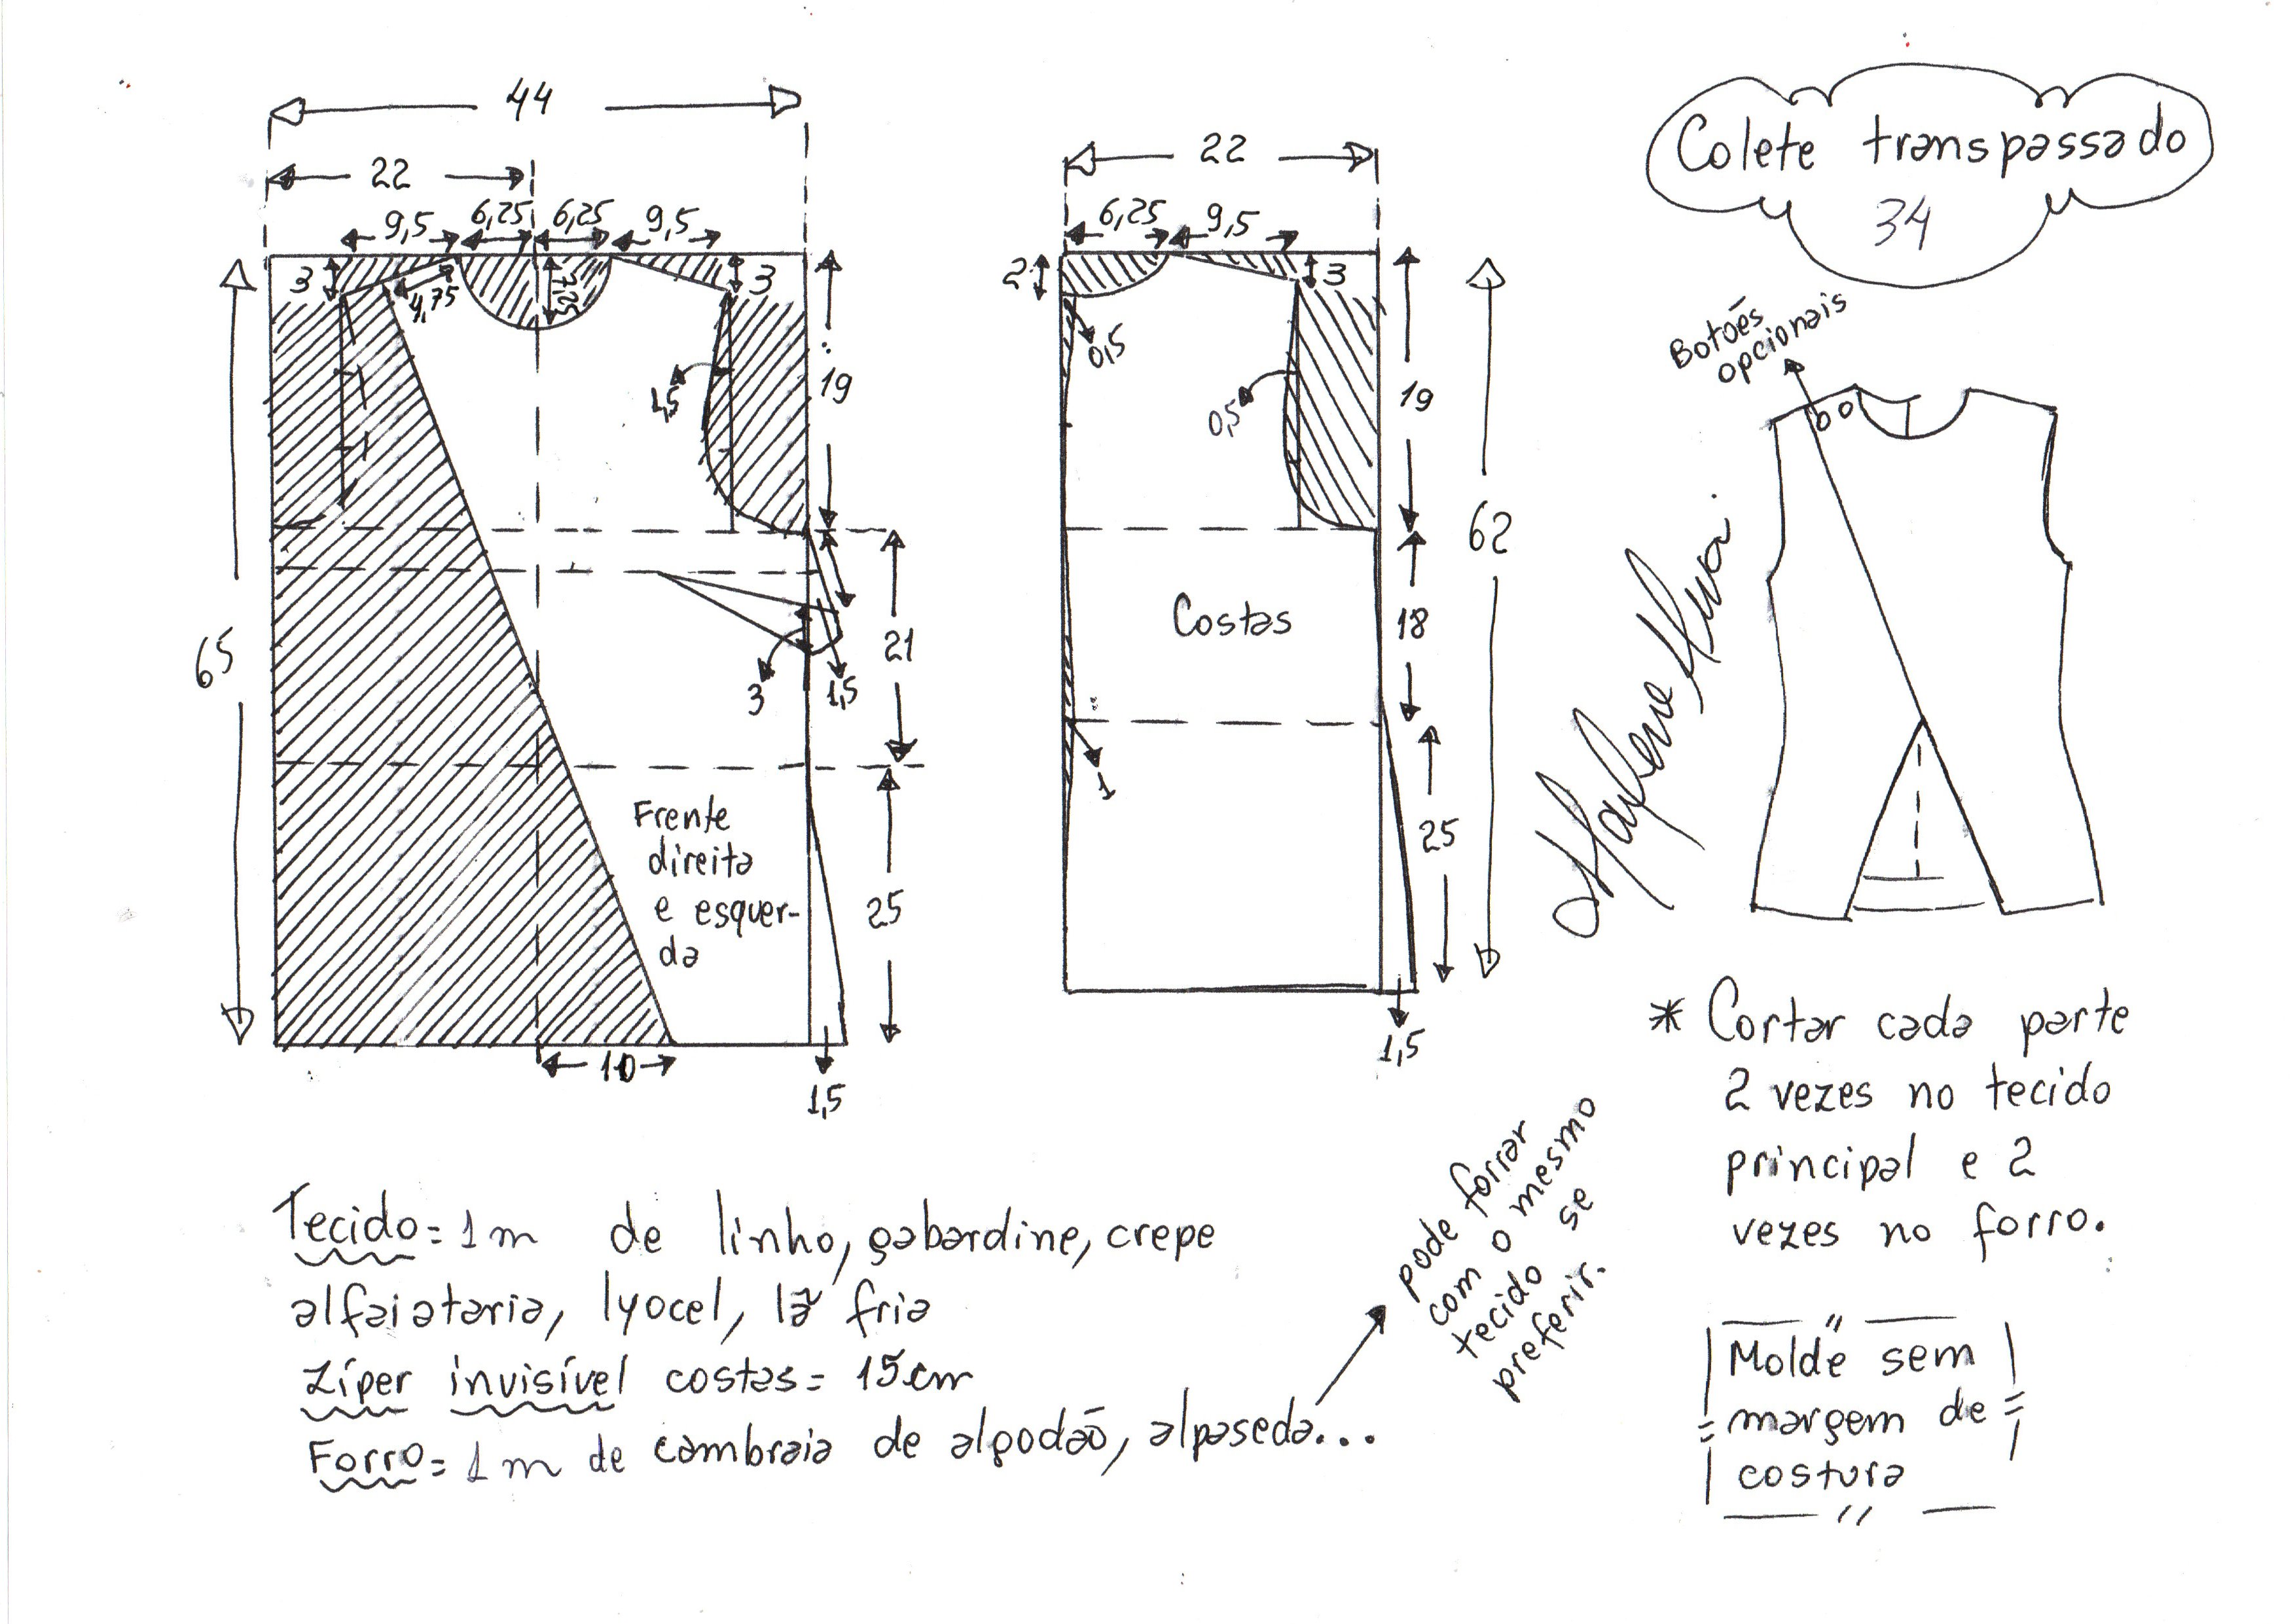 44
22
9,5 6,25 6,25 9,5
3
4,75
7,25
3
1,5
19
65
21
3
1,5
Frente
direita
e esquer-
da
25
10
1,5
22
6,25 9,5
2
3
0,5
0,5
19
62
Costas
18
1
25
1,5
Colete transpassado
34
Botões
opcionais
Marlene Mukai
* Cortar cada parte
2 vezes no tecido
principal e 2
vezes no forro.
Molde sem
margem de
costura
Tecido = 1 m de linho, gabardine, crepe
alfaiataria, lyocel, lã fria
Zíper invisível costas = 15 cm
Forro = 1 m de cambraia de algodão, alpaseda...
pode forrar
com o mesmo
tecido se
preferir.